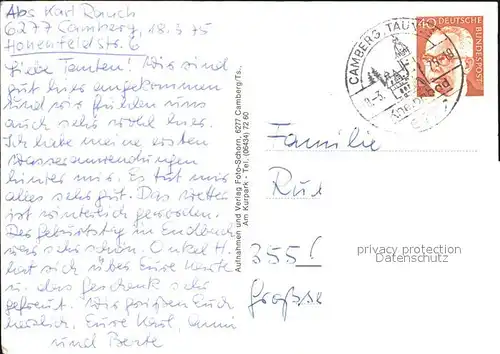 Abs Karl Rauch
6277 Camberg, 18.3.75
Hohenfeldstr. 6
Liebe Tanten! Wir sind
gut hier angekommen
und wir fühlen uns
auch sehr wohl hier.
Ich habe meine ersten
Wasseranwendungen
hinter mir. Es tut mir
alles sehr gut. Das Wetter
ist winterlich geworden.
Der Geburtstag in Endbach
war sehr schön. Onkel H.
hat sich über Eure Karte
u. das Geschenk sehr
gefreut. Wir grüßen Euch
herzlich. Eure Karl, Anni
und Berte
Aufnahmen und Verlag Foto-Schorn, 6277 Camberg/Ts.,
Am Kurpark - Tel. (06434) 72 60
CAMBERG, TAUNUS
18.3.
-18
40
DEUTSCHE
BUNDESPOST
Familie
Rur
355
Große
privacy protection
Datenschutz